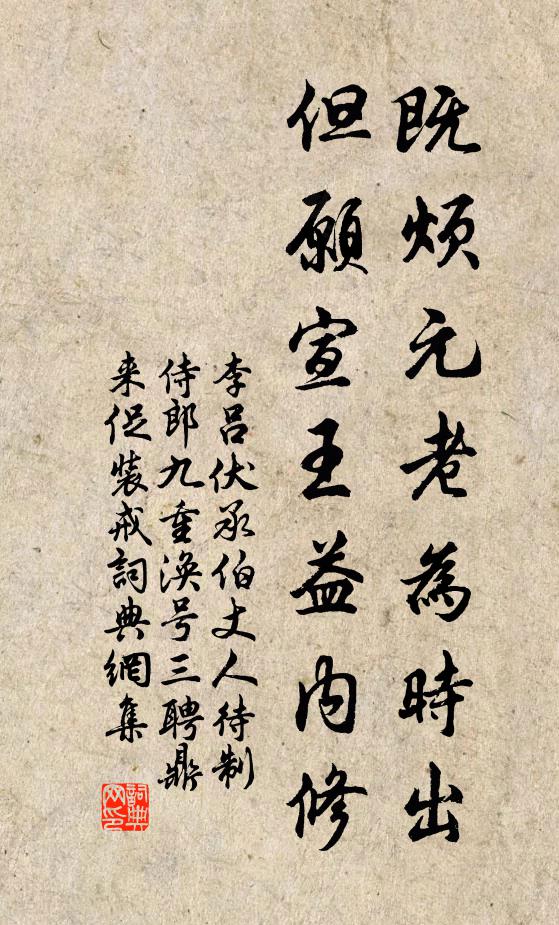 既烦元老為時出
但願宣王益内修
李吕伏承伯丈人待制
侍郎九重涣号三聘鼎
来促装戒詞典網集
詞典
网印